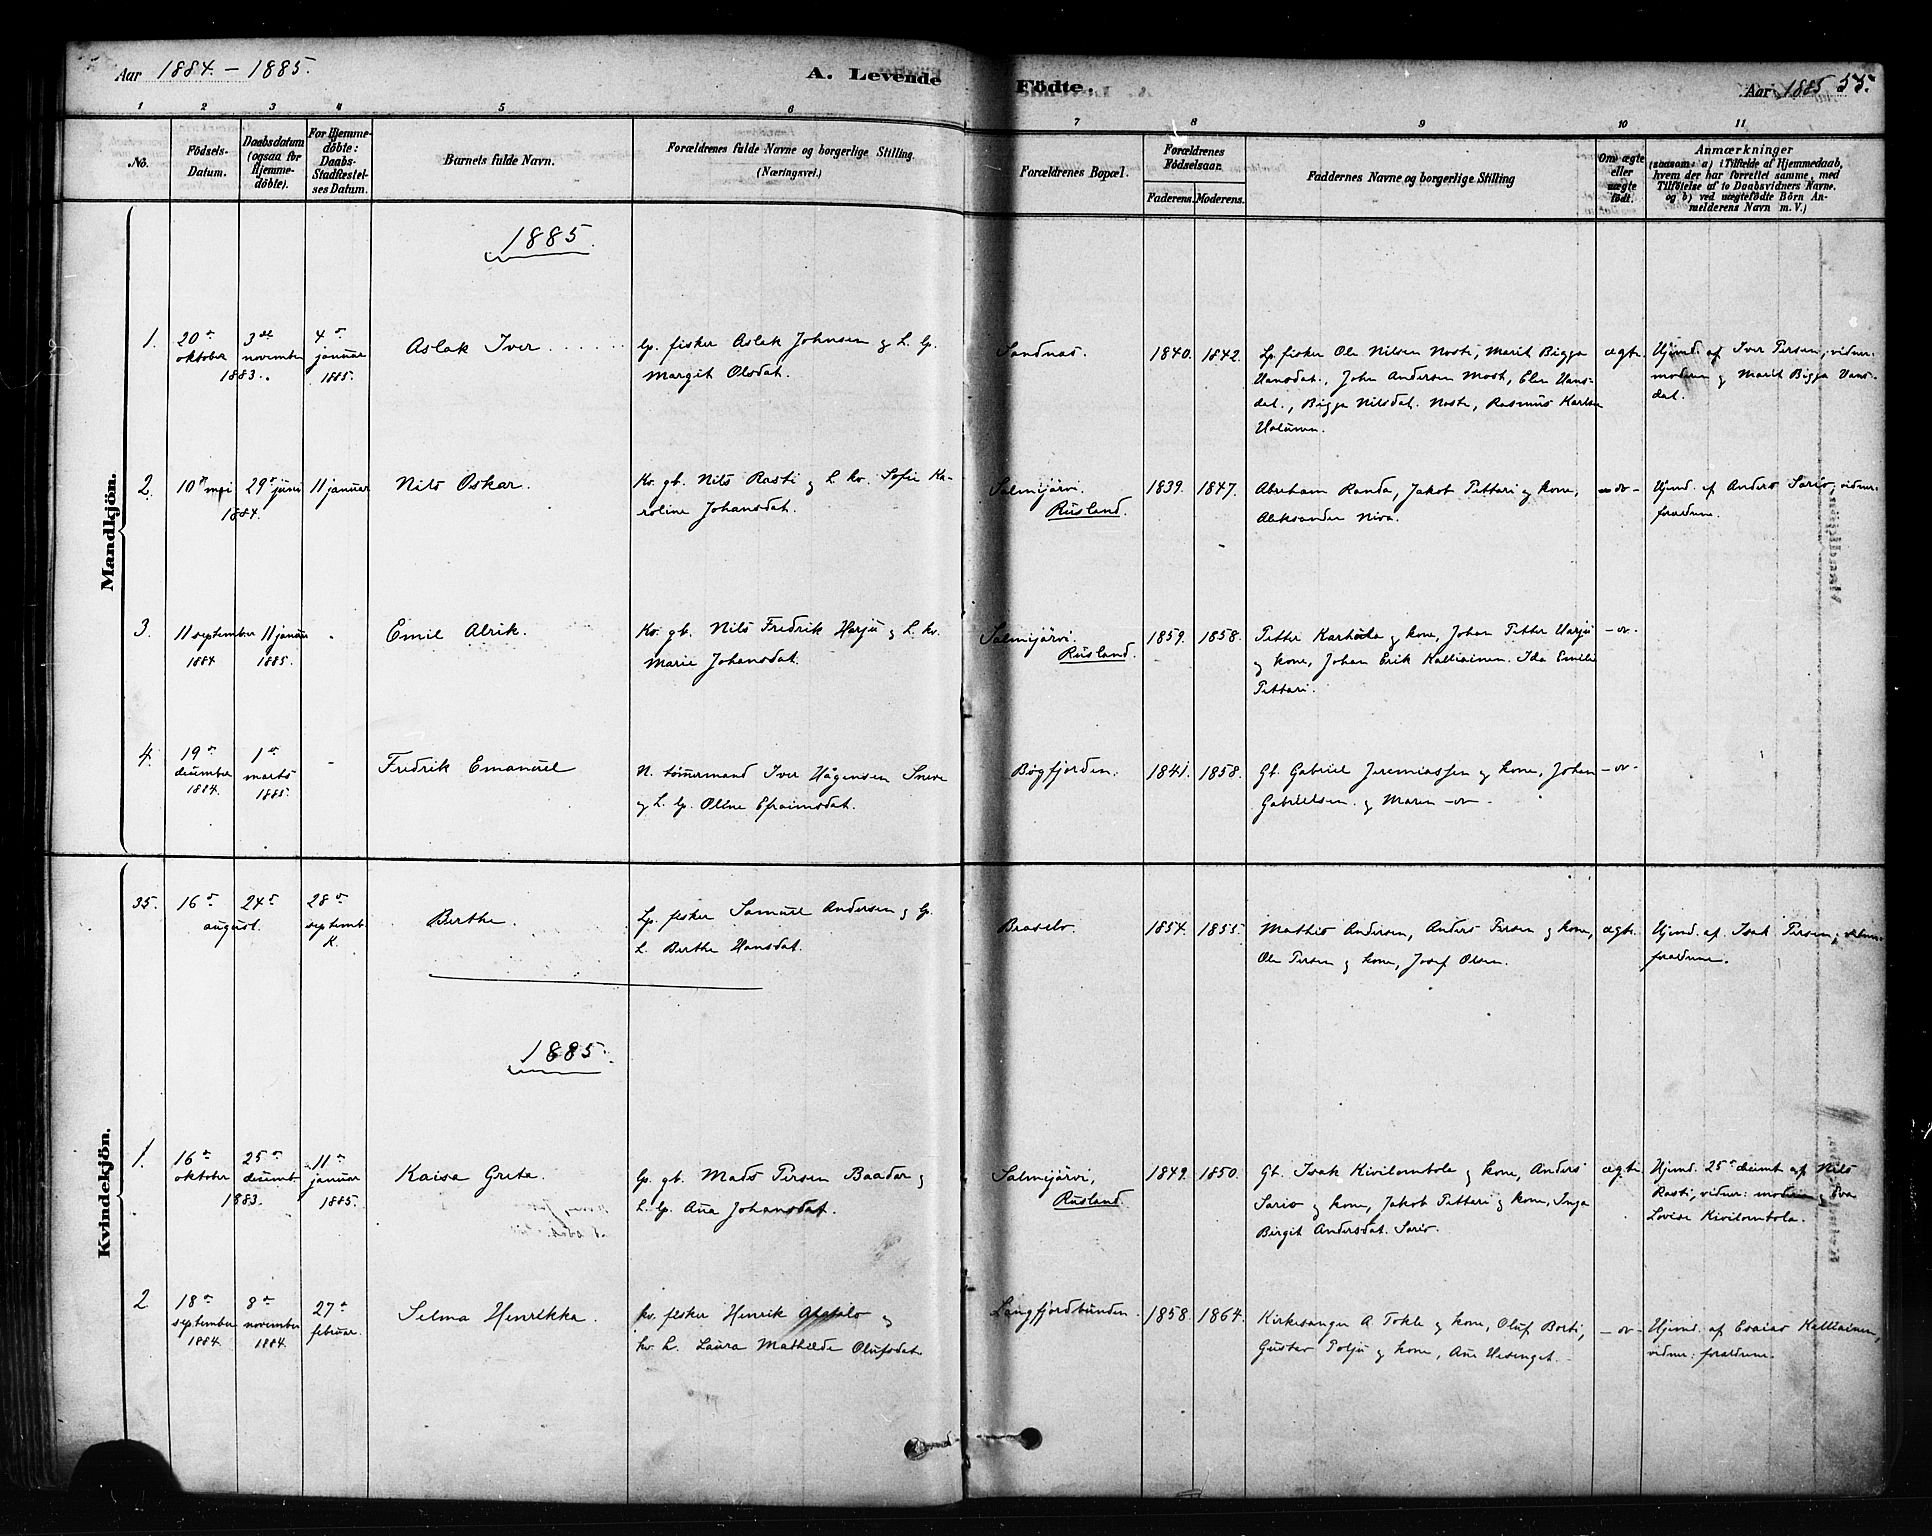 Aar 1884. - 1885.
A. Levende Födte.
Aar 1885 55.
1 2 3 4 5 6 7 8 9 10 11
No.
Födsels-Datum.
Daabsdatum (ogsaa for Hjemme-döbte).
For Hjemme-döbte: Daabs-Stadfæstel-ses Datum.
Barnets fulde Navn.
Forældrenes fulde Navne og borgerlige Stilling.
(Næringsvei.)
Forældrenes Bopæl.
Forældrenes Födselsaar.
Faderens. Moderens.
Faddernes Navne og borgerlige Stilling
Om ægte eller uægte födt.
Anmærkninger
(saasom: a) i Tilfælde af Hjemmedaab,
hvem der har forrettet samme, med
Tilföielse af to Daabsvidners Navne.
og b) ved uægtefödte Börn An-
melderens Navn m. V.)
Mandkjön.
1885.
1. 20de oktober 3de november 1883. 4de januar 1885.
Aslak Iver
lp. fisker Aslak Johnsen og h. lp.
Margit Olsdat.
Sandnæs. 1840. 1842.
Lp. fisker Ole Nilsen Nosti, Marit Bigga
Hansdat., John Andersen Most, Elen Hans-
dat., Bigga Nilsdat. Noste, Rasmus Karlsen
ægte.
Hjmd. af Iver Persen, vidner:
moderen og Marit Bigga Hans-
dat.
2. 10de mai 29de juni 1884. 11 januar
Nils Oskar.
Kv. gb. Nils Rasti og h. kv. Sofie Ka-
roline Johansdat.
Salmijärvi. Rusland. 1839. 1847.
Abraham Randa, Jakob Pettari og kone,
Aleksander Niva.
- " -
Hjmd. af Anders Sario, vidner:
forældrene.
3. 11 september 1884 11 januar 1885. -
Emil Alrik.
Kv. gb. Nils Fredrik Harju og h. kv.
Marie Johansdat.
Salmijärvi. Rusland. 1859. 1858.
Petter Karhula og kone, Johan Petter Harju
og kone, Johan Erik Kalliainen. Ida Emilie
Pettari.
- " -
4. 19de december 1884. 1ste marts 1885. -
Fredrik Emanuel
N. tömmermand Iver Hågensen Sneve
og h. lp. Oline Efraimsdat.
Bøgfjorden. 1841. 1858.
Gb. Gabriel Jeremiassen og kone, Johan
Gabrielsen og Maren - " -
- " -
Kvindekjön.
35. 16de 24de august. 28de septemb. K.
Berthe.
Lp. fisker Samuel Andersen og lp.
h. Berthe Hansdat.
Braselv. 1854. 1855.
Mathis Andersen, Anders Persen og kone,
Ole Persen og kone, Josef Olsen.
ægte.
Hjmd. af Isak Persen, vidner:
forældrene.
1885.
1. 16de oktober 25de decemb. 1883. 11te januar 1885.
Kaisa Greta.
lp. gb. Mads Persen Baadar og
h. lp. Ana Johansdat.
Salmijärvi, Rusland. 1849. 1850.
Gb. Isak Kivilombola og kone, Anders
Sario og kone, Jakob Pettari og kone, Inga
Birgit Andersdat. Sario.
ægte
Hjmd. 25de decemt af Nils
Rasti, vidner: moderen og Eva
Lovise Kivilombola.
2 18de september 1884. 8de november 1884. 27de februar.
Selma Henrikka.
kv. fisker Henrik og
kv. h. Laura Mathilde Olufsdat.
Langfjordbunden. 1858. 1864.
Kirkesanger A Tokle og kone, Oluf Borti,
Gustav Polju og kone, Ane
- " -
Hjmd. af Esaias Kalliainen,
vidner: forældrene.